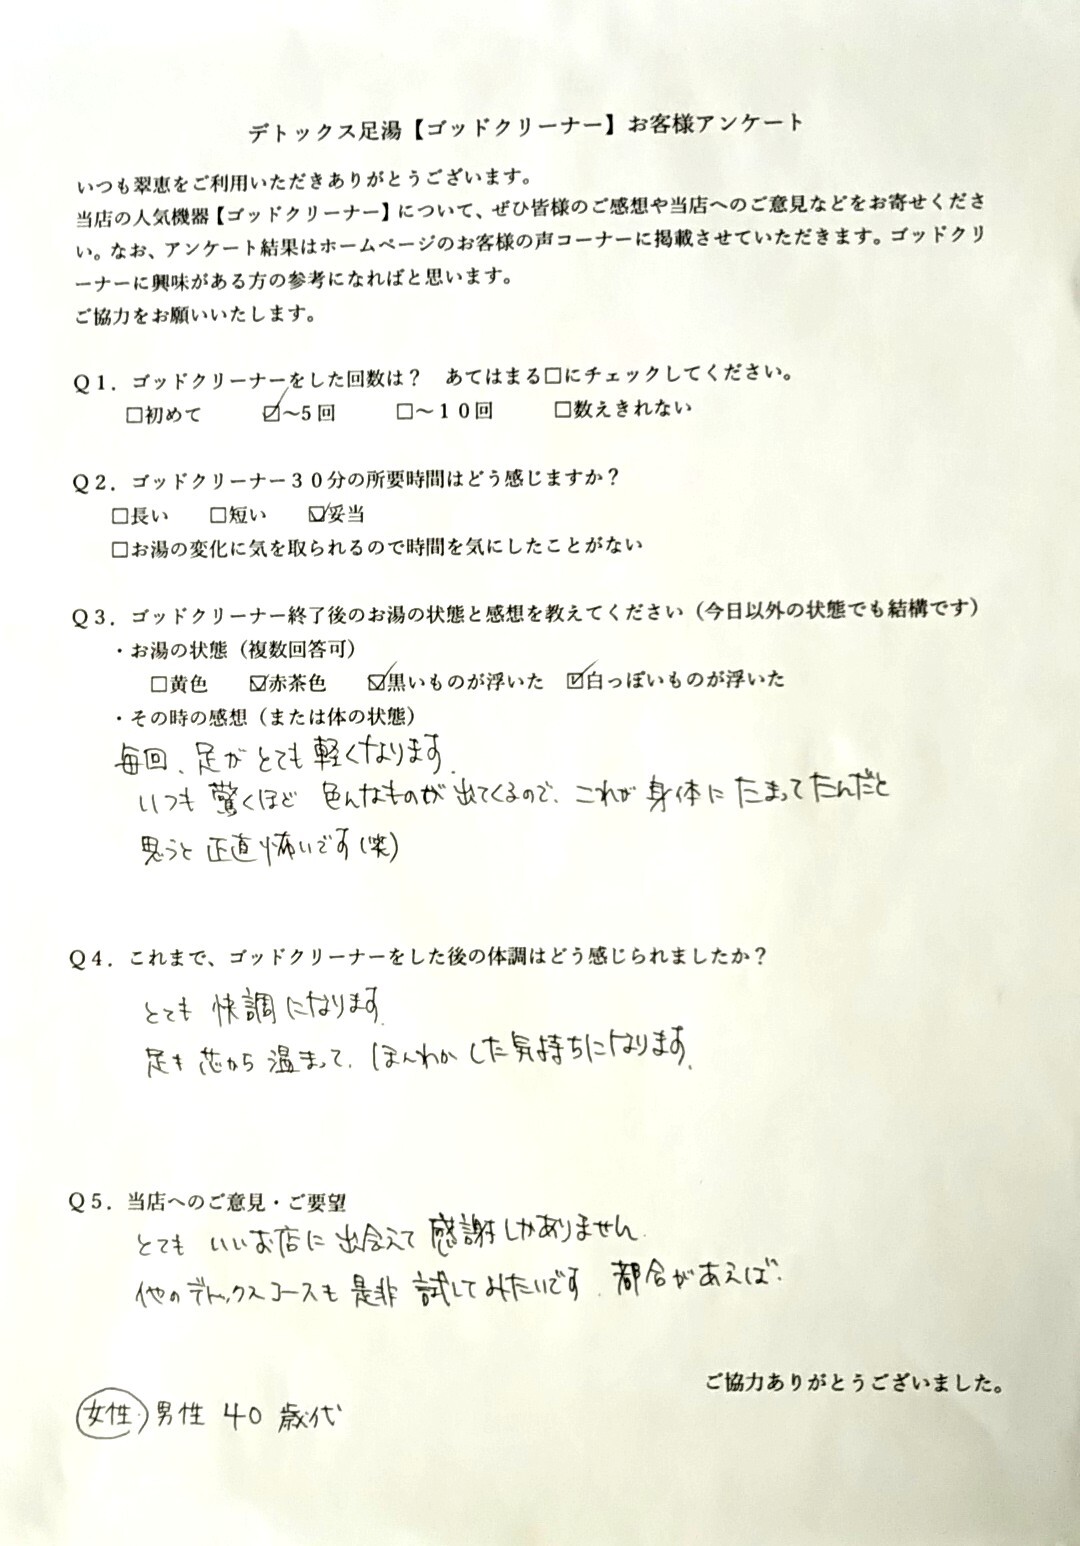 デトックス足湯【ゴッドクリーナー】お客様アンケート
いつも翠恵をご利用いただきありがとうございます。
当店の人気機器【ゴッドクリーナー】について、ぜひ皆様のご感想や当店へのご意見などをお寄せくださ
い。なお、アンケート結果はホームページのお客様の声コーナーに掲載させていただきます。ゴッドクリ
ーナーに興味がある方の参考になればと思います。
ご協力をお願いいたします。
Q1．ゴッドクリーナーをした回数は？　あてはまる□にチェックしてください。
□初めて　☑～5回　□～10回　□数えきれない
Q2．ゴッドクリーナー30分の所要時間はどう感じますか？
□長い　□短い　☑妥当
□お湯の変化に気を取られるので時間を気にしたことがない
Q3．ゴッドクリーナー終了後のお湯の状態と感想を教えてください（今日以外の状態でも結構です）
・お湯の状態（複数回答可）
□黄色　☑赤茶色　☑黒いものが浮いた　☑白っぽいものが浮いた
・その時の感想（または体の状態）
毎回、足がとても軽くなります。
いつも驚くほど 色んなものが出てくるので、これが身体にたまってたんだと
思うと正直怖いです(笑)
Q4．これまで、ゴッドクリーナーをした後の体調はどう感じられましたか？
とても快調になります。
足も芯から温まって、ほんわかした気持ちになります。
Q5．当店へのご意見・ご要望
とても いいお店に出会えて感謝しかありません。
他のデトックスコースも是非試してみたいです。都合があえば。
ご協力ありがとうございました。
女性・男性 40 歳代